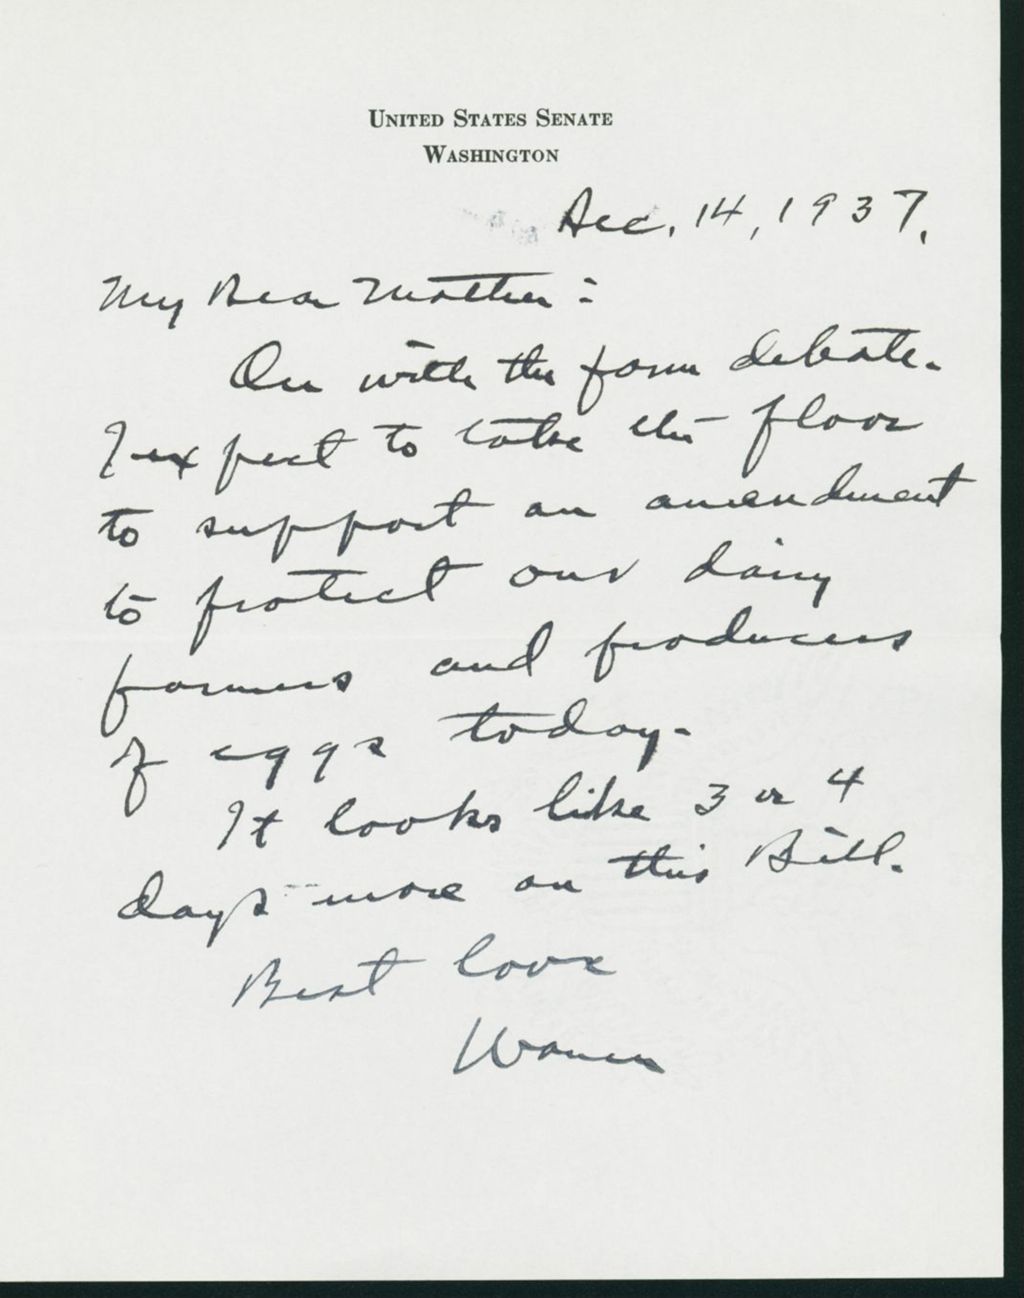 UNITED STATES SENATE
WASHINGTON
Dec. 14, 1937.
My Dear Mother:
On with the farm debate.
I expect to take the floor
to support an amendment
to protect our dairy
farmers and producers
of eggs today.
It looks like 3 or 4
days more on this Bill.
Best love
Warren